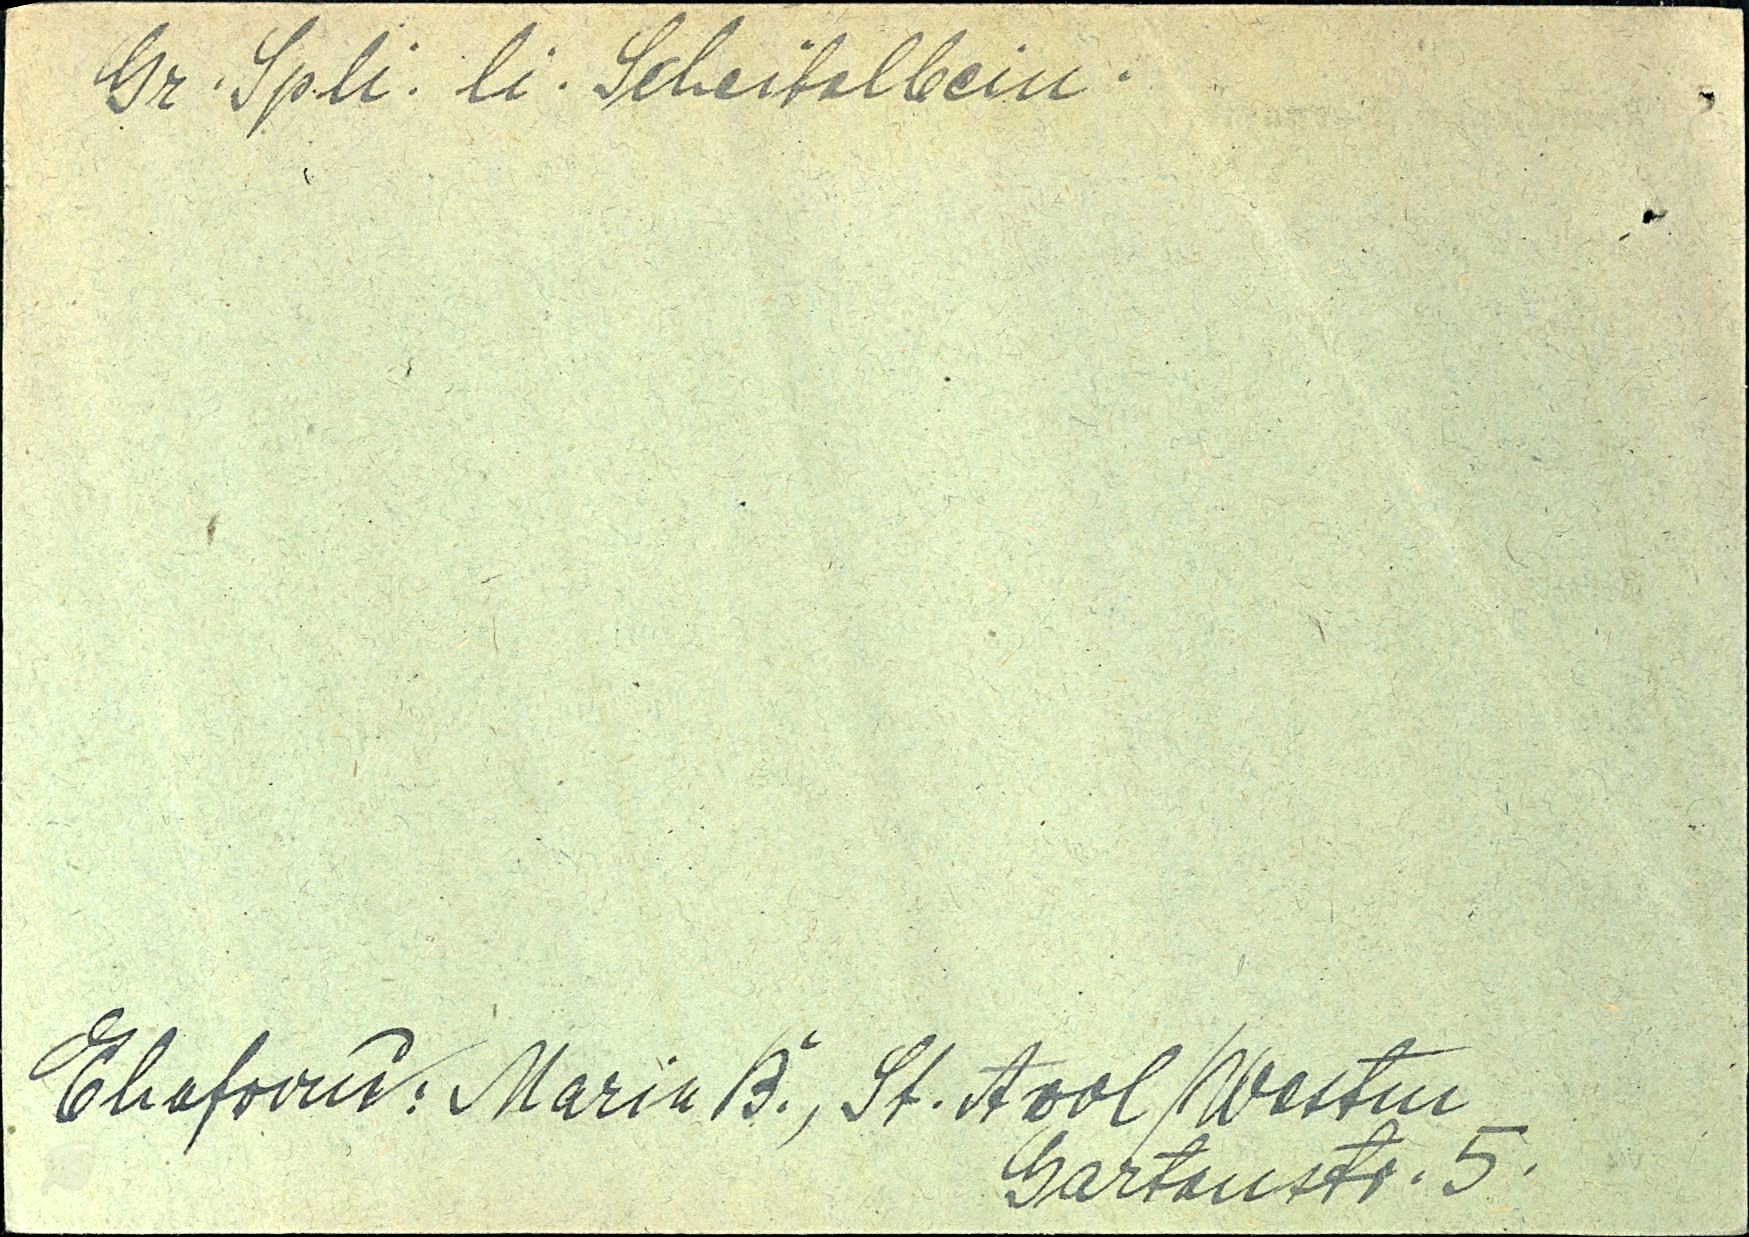 Gr. Spli. li. Scheitelbein.
Ehefrau: Maria B., St. Avold/Westm
Gartenstr. 5.